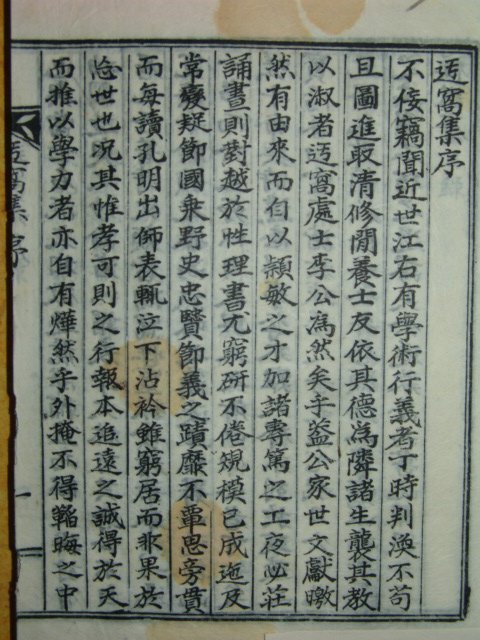 迃窩集序
不佞竊聞近世江右有學術行義者丁時判渙不苟
且圖進取淸修閒養士友依其德為隣諸生襲其教
以淑者迃窩處士李公為然矣乎盖公家世文獻曒
然有由來而自以穎敏之才加諸專篤之工夜必莊
誦書則對越於性理書尤窮研不倦規模已成迤及
常變疑節國乘野史忠賢節義之蹟靡不覃思旁貫
而每讀孔明出師表輒泣下沾衿雖窮居而非果於
忘世也况其惟孝可則之行報本追遠之誠得於天
而推以學力者亦自有燁然乎外掩不得韜晦之中
迃窩集 序
一